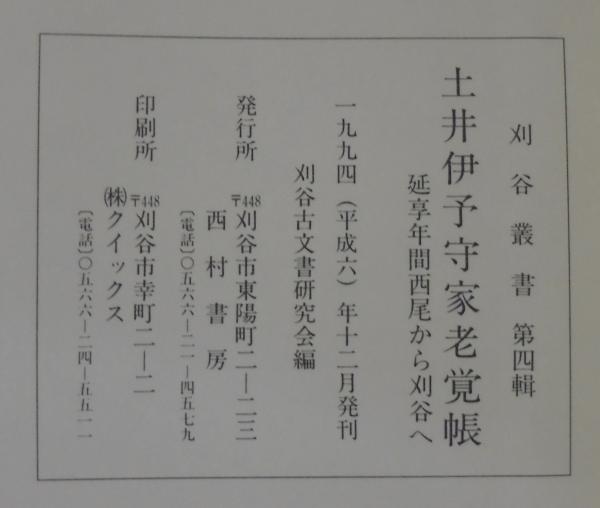 刈谷叢書 第四輯
土井伊予守家老覚帳
延享年間西尾から刈谷へ
一九九四（平成六）年十二月発刊
刈谷古文書研究会編
発行所 〒448 刈谷市東陽町二―二三
西村書房
〔電話〕〇五六六―二一―四五七九
印刷所 〒448 刈谷市幸町二―二
㈱クイックス
〔電話〕〇五六六―二四―五五一一